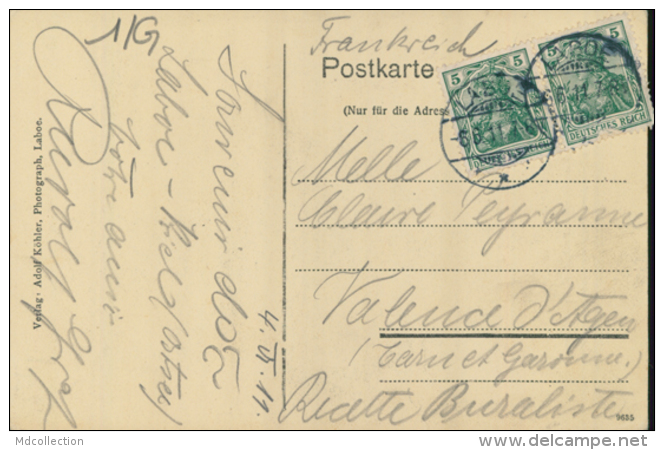 1/G
Souvenir de
Laboe - Kiel (Ostsee)
Votre ami
4. VI. 11.
Verlag: Adolf Köhler, Photograph, Laboe.
Frankreich
Postkarte
(Nur für die Adress
5 5
DEUTSCHES REICH
5 5
DEUTSCHES REICH
Melle
Claire Peyranne
Valence d'Agen
(Tarn et Garonne.)
Recette Buraliste
9625
Mdcollection
www.delcampe.net